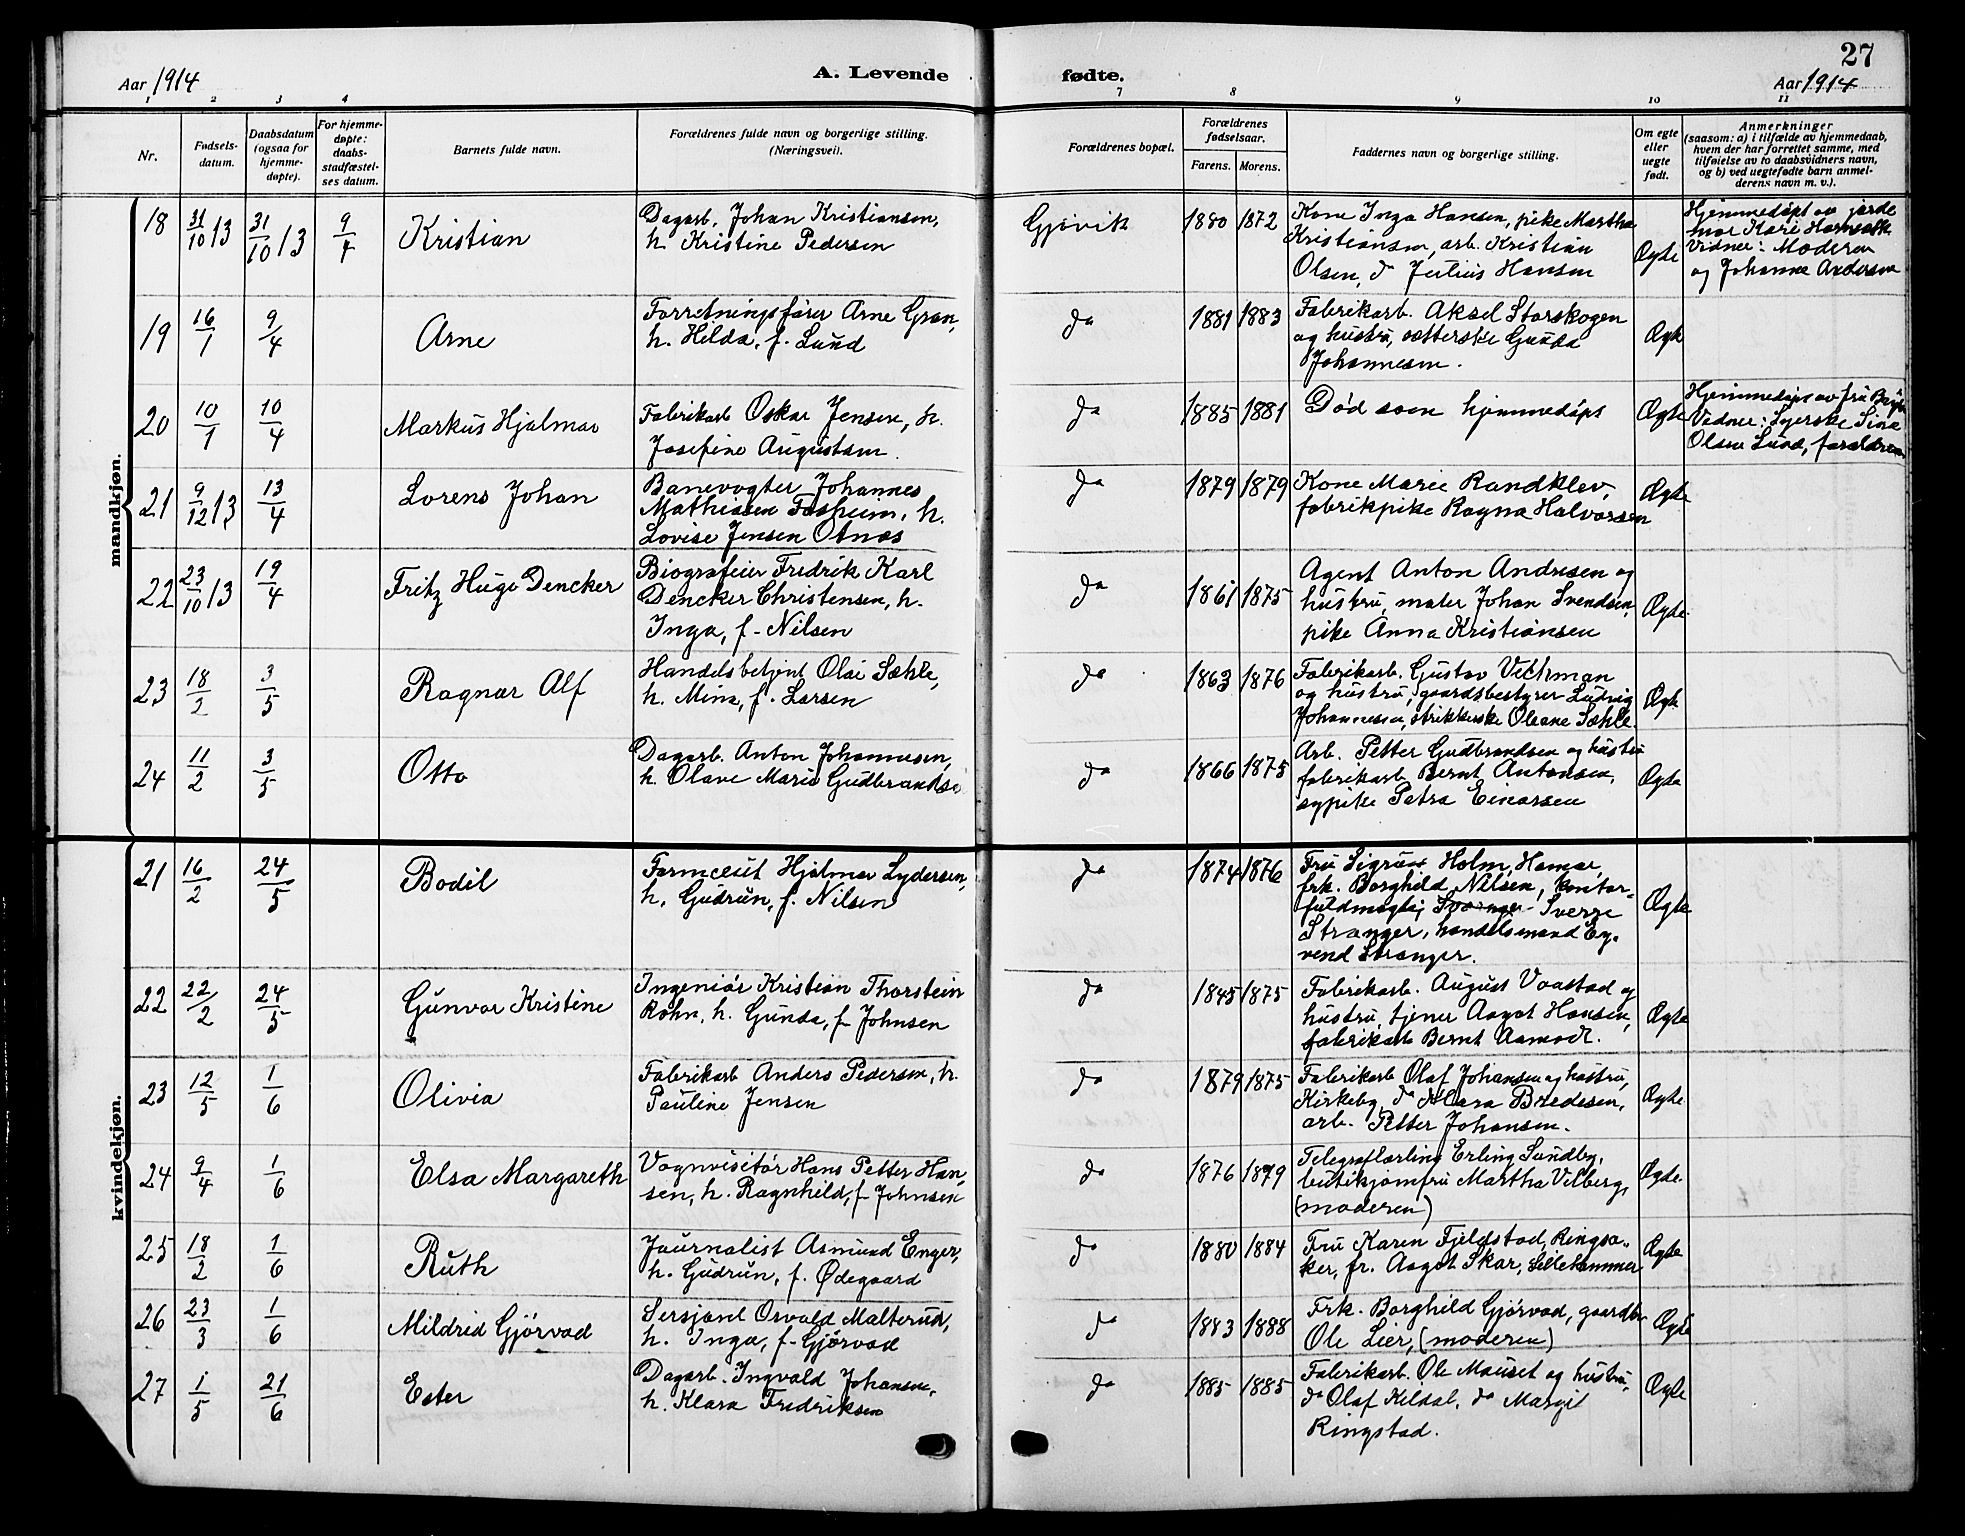 27
Aar 1914
A. Levende fødte.
Aar 1914
1 2 3 4 7 8 9 10 11
Nr.
Fødsels-
datum.
Daabsdatum
(ogsaa for
hjemme-
døpte).
For hjemme-
døpte:
daabs-
stadfæstel-
ses datum.
Barnets fulde navn.
Forældrenes fulde navn og borgerlige stilling.
(Næringsvei).
Forældrenes bopæl.
Forældrenes
fødselsaar.
Farens. Morens.
Faddernes navn og borgerlige stilling.
Om egte
eller
uegte
født.
Anmerkninger
(saasom: a) i tilfælde av hjemmedaab,
hvem der har forrettet samme, med
tilføielse av to daabsvidners navn,
og b) ved uegtefødte barn anmel-
derens navn m. v.).
mandkjøn.
18 31/10 13 31/10 13 9/4 Kristian
Dagarb. Johan Kristiansen,
h. Kristine Pedersen
Gjøvik 1880 1872
Kone Inga Hansen, pike Martha
Kristiansen, arb. Kristian
Olsen, do Julius Hansen
Ægte
Hjemmedøpt av jorde
mor Kari
Vidner: Moderen
og Johanne Andersen
19 16/1 9/4 Arne
Forretningsfører Arne Gran,
h. Hilda, f. Lund
do 1881 1883
Fabrikarb. Aksel Storskogen
og hustru, vetterske Gunda
Johannesen.
Ægte
20 10/1 10/4 Markus Hjalmar
Fabrikarb Oskar Jensen, h.
Josefine Augustsen.
do 1885 1881
Død som hjemmedøpt
Ægte
Hjemmedøpt av fru
Vidner: Syerske Sina
Olsen Lund, forældrene
21 9/12 13 13/4 Lorens Johan
Banevogter Johannes
Mathiasen Fosheim, h.
Lovise Jensen Otnes
do 1879 1879
Kone Marie Randklev,
fabrikpike Ragna Halvorsen
Ægte
22 23/10 13 19/4 Fritz Hugo Dencker
Biografeier Fredrik Karl
Dencker Christensen, h.
Inga, f. Nilsen
do 1861 1875
Agent Anton Andresen og
hustru, maler Johan Svendsen,
pike Anna Kristiansen
Ægte
23 18/2 3/5 Ragnar Alf
Handelsbetjent Olai Sæhle,
h. Mina, f. Larsen
do 1863 1876
Fabrikarb. Gustav
og hustru, gaardsbestyrer Ludvig
Johannessen, strikkerske Oleane Sæhle.
Ægte
24 11/2 3/5 Otto
Dagarb. Anton Johannesen,
h. Olave Marie Gudbrandsen
do 1866 1875
Arb. Petter Gudbrandsen og hustru
fabrikarb. Bernt Antonsen,
sypike Petra Einarsen
Ægte
kvindekjøn.
21 16/2 24/5 Bodil
Farmceut Hjalmar Lydersen,
h. Gudrun, f. Nilsen
do 1874 1876
Fru Sigrun Holm, Hamar,
frk. Borghild Nilsen, kontor-
fuldmægtig Sverre
Stranger, handelsmand Ey-
vend Stranger.
Ægte
22 22/2 24/5 Gunvor Kristine
Ingeniør Kristian Thorstein
Rohn, h. Gunda, f. Johnsen
do 1845 1875
Fabrikarb. August Vaastad og
hustru, tjener Aagot Hansen,
fabrikarb Bernt Aamodt.
Ægte
23 12/5 1/6 Olivia
Fabrikarb Anders Pedersen, h.
Pauline Jensen
do 1879 1875
Fabrikarb Olaf Johansen og hustru,
Kirkeby, do Klara Bredesen,
arb. Petter Johansen.
Ægte
24 9/4 1/6 Elsa Margareth
Vognvisitør Hans Petter Han-
sen, h. Ragnhild, f. Johnsen
do 1876 1879
Telegraflærling Erling Sundby,
butikjomfru Martha Vilberg,
(moderen)
Ægte
25 18/2 1/6 Ruth
Journalist Asmund Enger,
h. Gudrun, f. Ødegaard
do 1880 1884
Fru Karen Fjeldstad, Ringsa-
ker, fr. Aagot Skar, Lillehammer
Ægte
26 23/3 1/6 Mildrid Gjørvad
Sersjant Osvald Malterud,
h. Inga, f. Gjørvad
do 1883 1888
Frk. Borghild Gjørvad, gaardbr
Ole Lier, (moderen)
Ægte
27 1/5 21/6 Ester
Dagarb. Ingvald Johansen,
h. Klara Fredriksen
do 1885 1885
Fabrikarb. Ole Mauset og hustru,
do Olaf Kildal, do Margit
Ringstad.
Ægte